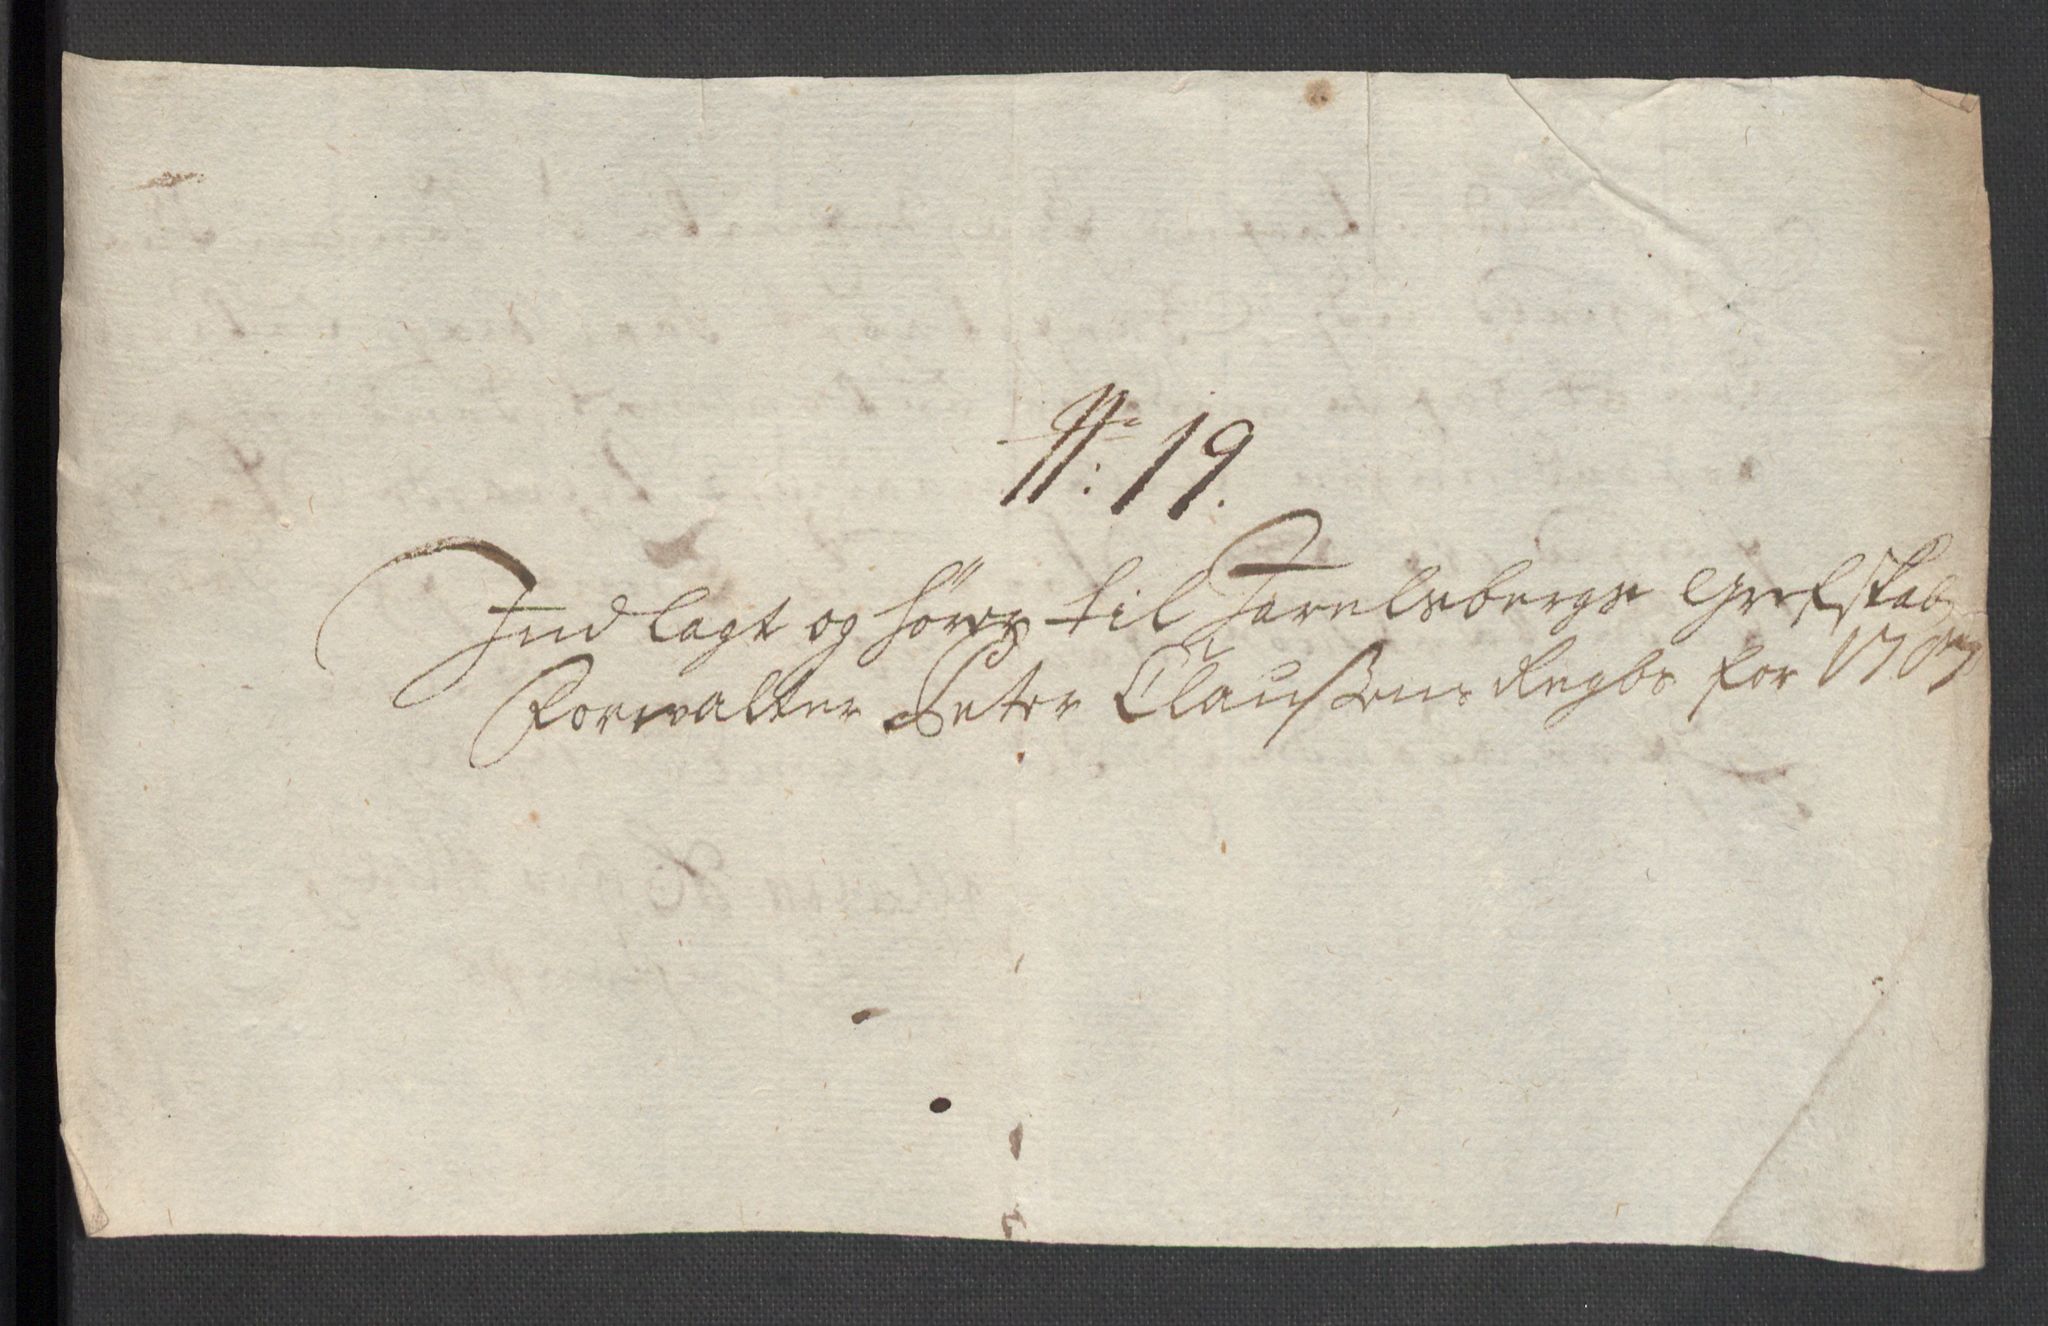 No: 19.
Indlagt og hörer til Jarelsbergs Grefskabs
Forvalter Peter Claußens Regbs for 1707